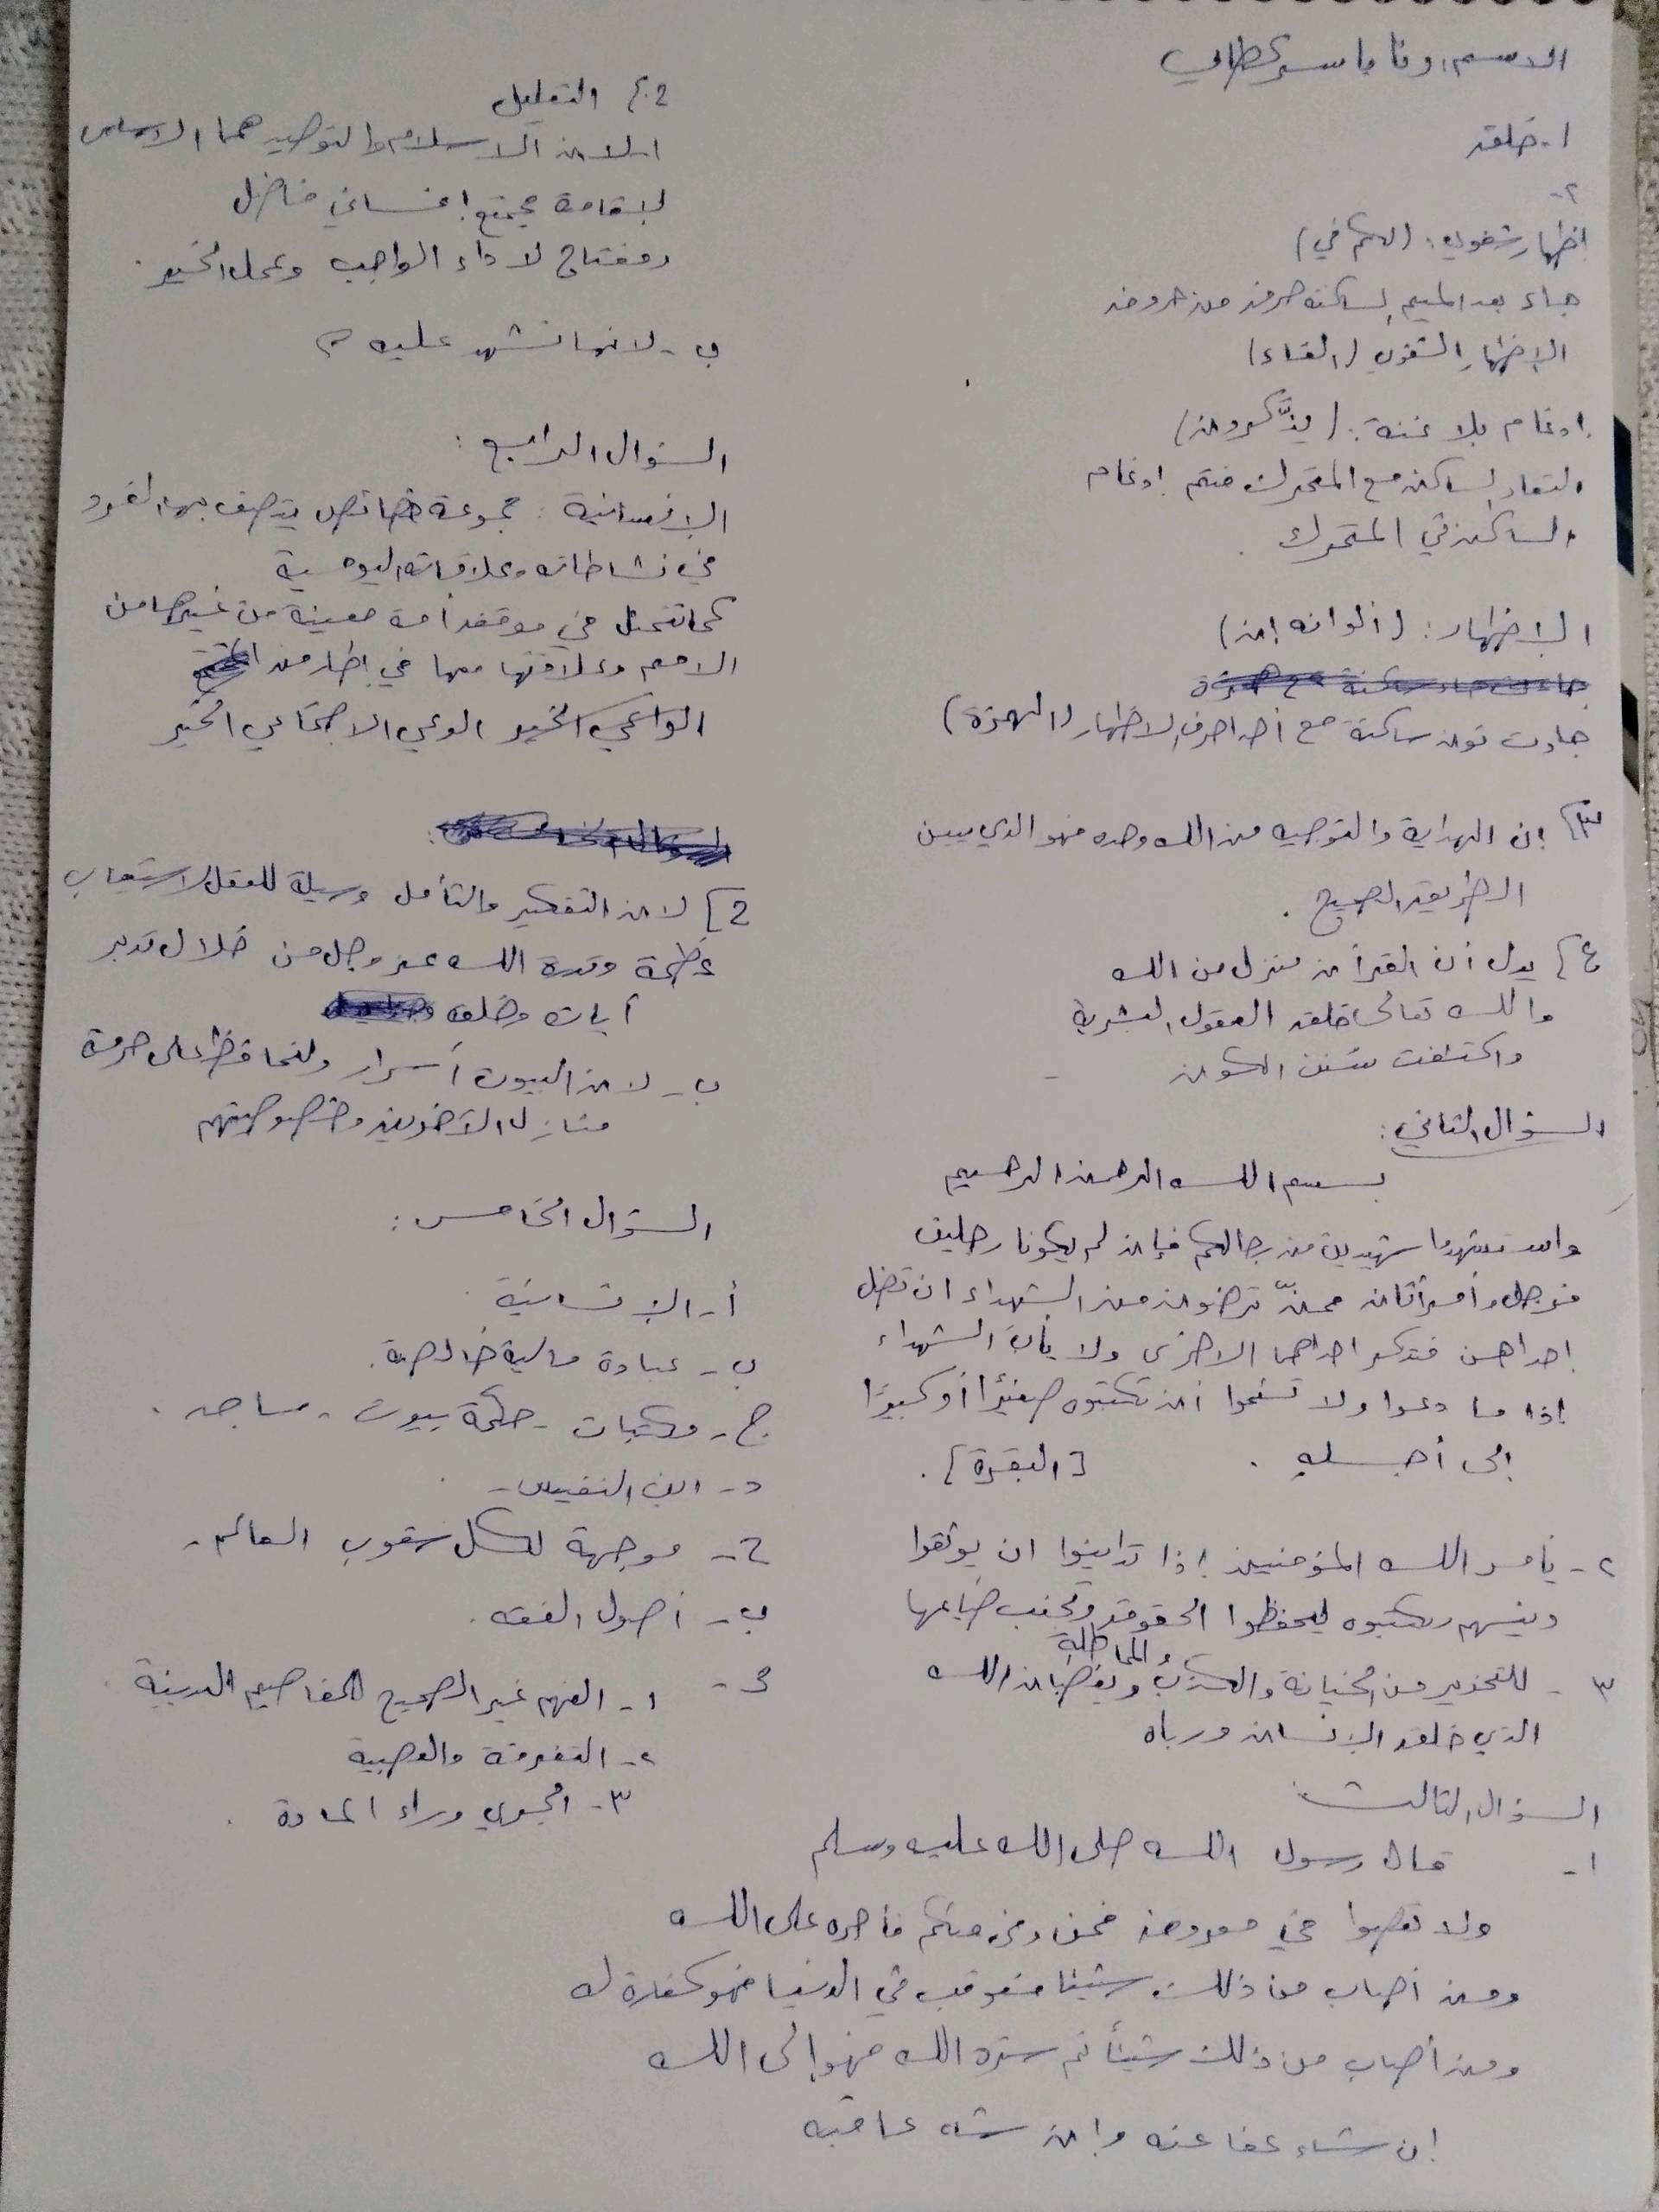 الاسم: وفا ياسر
١- خلقه
٢-
إظهار شفوي: (لكم في)
جاء بعد الميم الساكنة حرف من حروف
الإظهار الشفوي (الفاء)
إدغام بلا غنة: (يذّكرون)
التقاء الساكن مع المتحرك فتم إدغام
الساكن في المتحرك.
الإظهار: (ألوانه إن)
جاءت نون ساكنة مع أحد احرف الاظهار (الهمزة)
٣] إن الهداية والتوجيه من الله وحده فهو الذي يبين
الطريق الصحيح.
٤] يدل أن القرآن منزل من الله
والله تعالى خلق العقول البشرية
واكتشفت سنن الكون
السؤال الثاني:
بسم الله الرحمن الرحيم
واستشهدوا شهيدين من رجالكم فإن لم يكونا رجلين
فرجل وأمرأتان ممنّ ترضون من الشهداء ان تضل
احداهن فتذكر احداهما الاخرى ولا يأب الشهداء
إذا ما دعوا ولا تسئموا أن تكتبوه صغيرًا أو كبيرًا
إلى أجله. [البقرة].
٢- يأمر الله المؤمنين إذا تداينوا ان يوثقوا
دينهم ويكتبوه ليحفظوا الحقوق وتجنب ضياعها
٣- للتحذير من الخيانة والكذب والمماطلة ويغضبان الله
الذي خلق الإنسان ورباه
السؤال الثالث
١- قال رسول الله صلى الله عليه وسلم
ولا تعصوا في معروف فمن وفى منكم فأجره على الله
ومن أصاب من ذلك شيئا فعوقب في الدنيا فهو كفارة له
ومن أصاب من ذلك شيئاً ثم ستره الله فهو إلى الله
إن شاء عفا عنه وإن شاء عاقبه
2] التعليل
١- لان الاسلام والتوحيد هما الاساس
لإقامة مجتمع إنساني فاضل
ومفتاح لاداء الواجب وعمل الخير.
ب- لانها تشهد عليه
السؤال الرابع:
الإنسانية: مجموعة خصائص يتصف بها الفرد
في نشاطاته وعلاقاته اليومية
كما تتمثل في موقف أمة معينة من غيرها من
الامم وعلاقتها معها في إطار من
الواعي الخير الوعي الاجتماعي الخير
2] لان التفكير والتأمل وسيلة للعقل لاستيعاب
عظمة وقدرة الله عز وجل من خلال تدبر
آيات وخلق
ب- لان البيوت أسرار ولنحافظ على حرمة
منازل الآخرين وخصوصيتهم
السؤال الخامس:
أ- الإنسانية
ب- عبادة مالية خالصة.
ج- مكتبات - حكمة بيوت - مساجد.
د- ابن النفيس.
2- موجهة لكل شعوب العالم.
ب- أصول الفقه.
3- ١- الفهم غير الصحيح للمفاهيم الدينية.
٢- التفرقة والعصبية
٣- الجري وراء المادة.